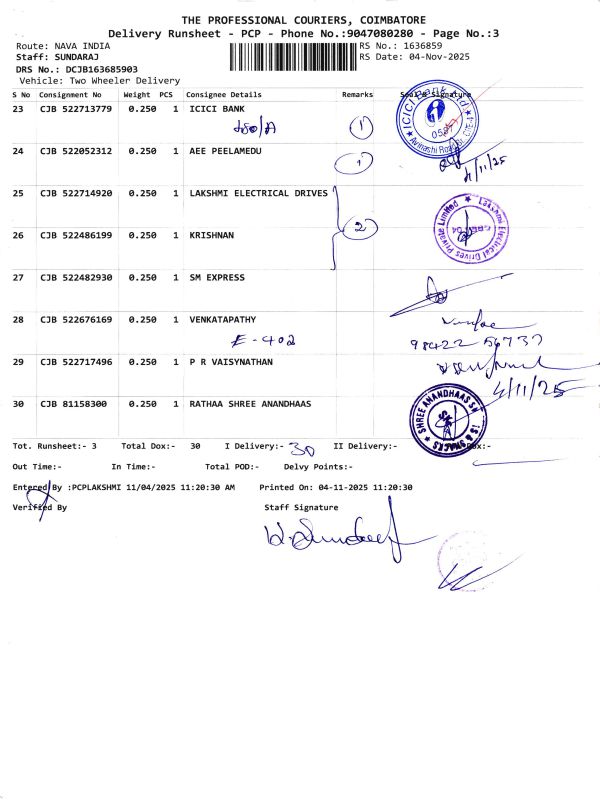 THE PROFESSIONAL COURIERS, COIMBATORE
Delivery Runsheet - PCP - Phone No.:9047080280 - Page No.:3
Route: NAVA INDIA RS No.: 1636859
Staff: SUNDARAJ RS Date: 04-Nov-2025
DRS No.: DCJB163685903
Vehicle: Two Wheeler Delivery
S No Consignment No Weight PCS Consignee Details Remarks Seal & Signature
23 CJB 522713779 0.250 1 ICICI BANK
1
ICICI Bank Ltd
24 CJB 522052312 0.250 1 AEE PEELAMEDU
1
4/11/25
25 CJB 522714920 0.250 1 LAKSHMI ELECTRICAL DRIVES
Lakshmi Electrical Drives Private Limited
2
26 CJB 522486199 0.250 1 KRISHNAN
27 CJB 522482930 0.250 1 SM EXPRESS
28 CJB 522676169 0.250 1 VENKATAPATHY
E-402
98422 56737
29 CJB 522717496 0.250 1 P R VAISYNATHAN
4/11/25
30 CJB 81158300 0.250 1 RATHAA SHREE ANANDHAAS
SHREE ANANDHAAS
Tot. Runsheet:- 3 Total Dox:- 30 I Delivery:- 30 II Delivery:-
Out Time:- In Time:- Total POD:- Delvy Points:-
Entered By :PCPLAKSHMI 11/04/2025 11:20:30 AM Printed On: 04-11-2025 11:20:30
Verified By Staff Signature